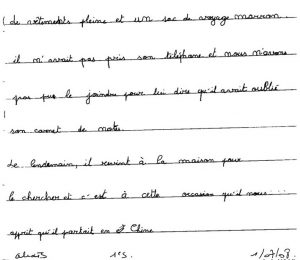 de vêtements pleine et un sac de voyage marron
il n'avait pas pris son téléphone et nous n'avons
pas pu le joindre pour lui dire qu'il avait oublié
son carnet de notes.
Le lendemain, il revint à la maison pour
le chercher et c'est à cette occasion qu'il nous
apprit qu'il partait en Chine
1°S. 1/07/08